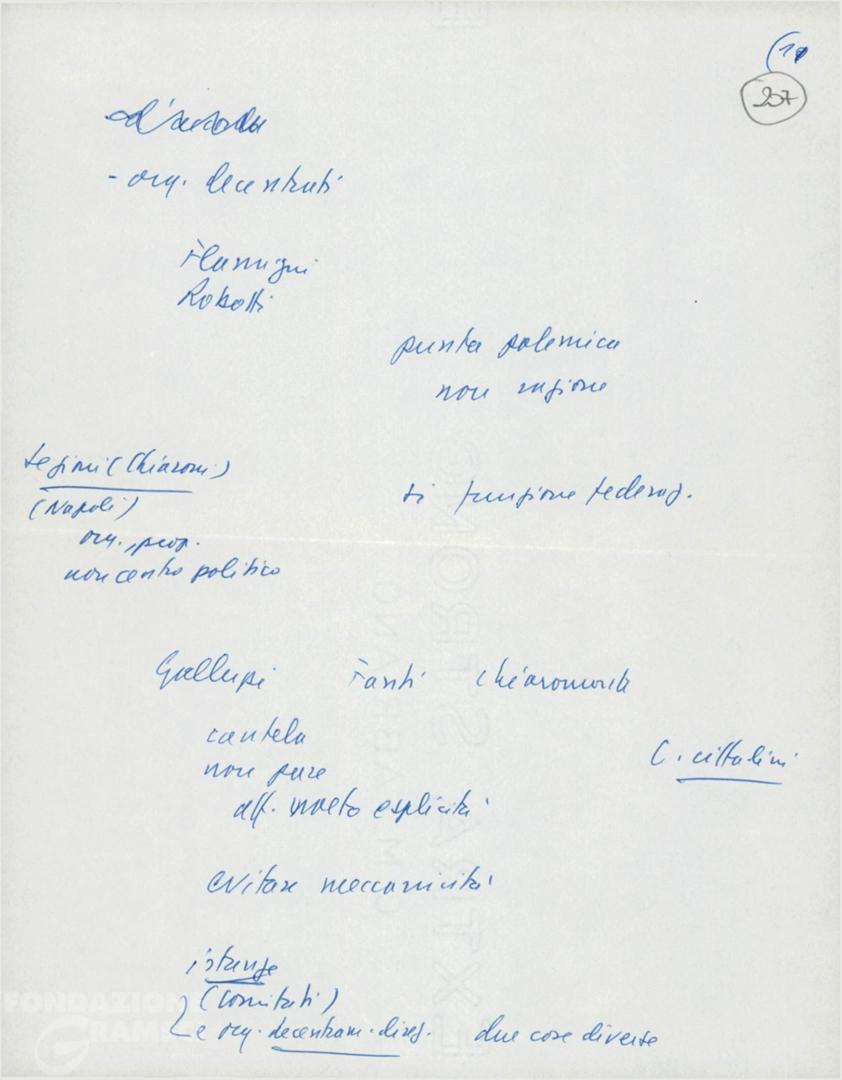 (1
237
d'accordo
- org. decentrati
Flamigni
Robotti
punta polemica
non ragione
(Chiarom.)
(Napoli)
org., prop.
non centro politico
si funzione federaz.
Galluzzi Fanti Chiaromonte
cautela
non pare
aff. molto esplicita
C. cittadini
evitare meccanicità
istanze
(Comitati)
e org. decentram. direz. due cose diverse
FONDAZIONE
GRAMSCI
EXTRA STRONG
FABRIANO